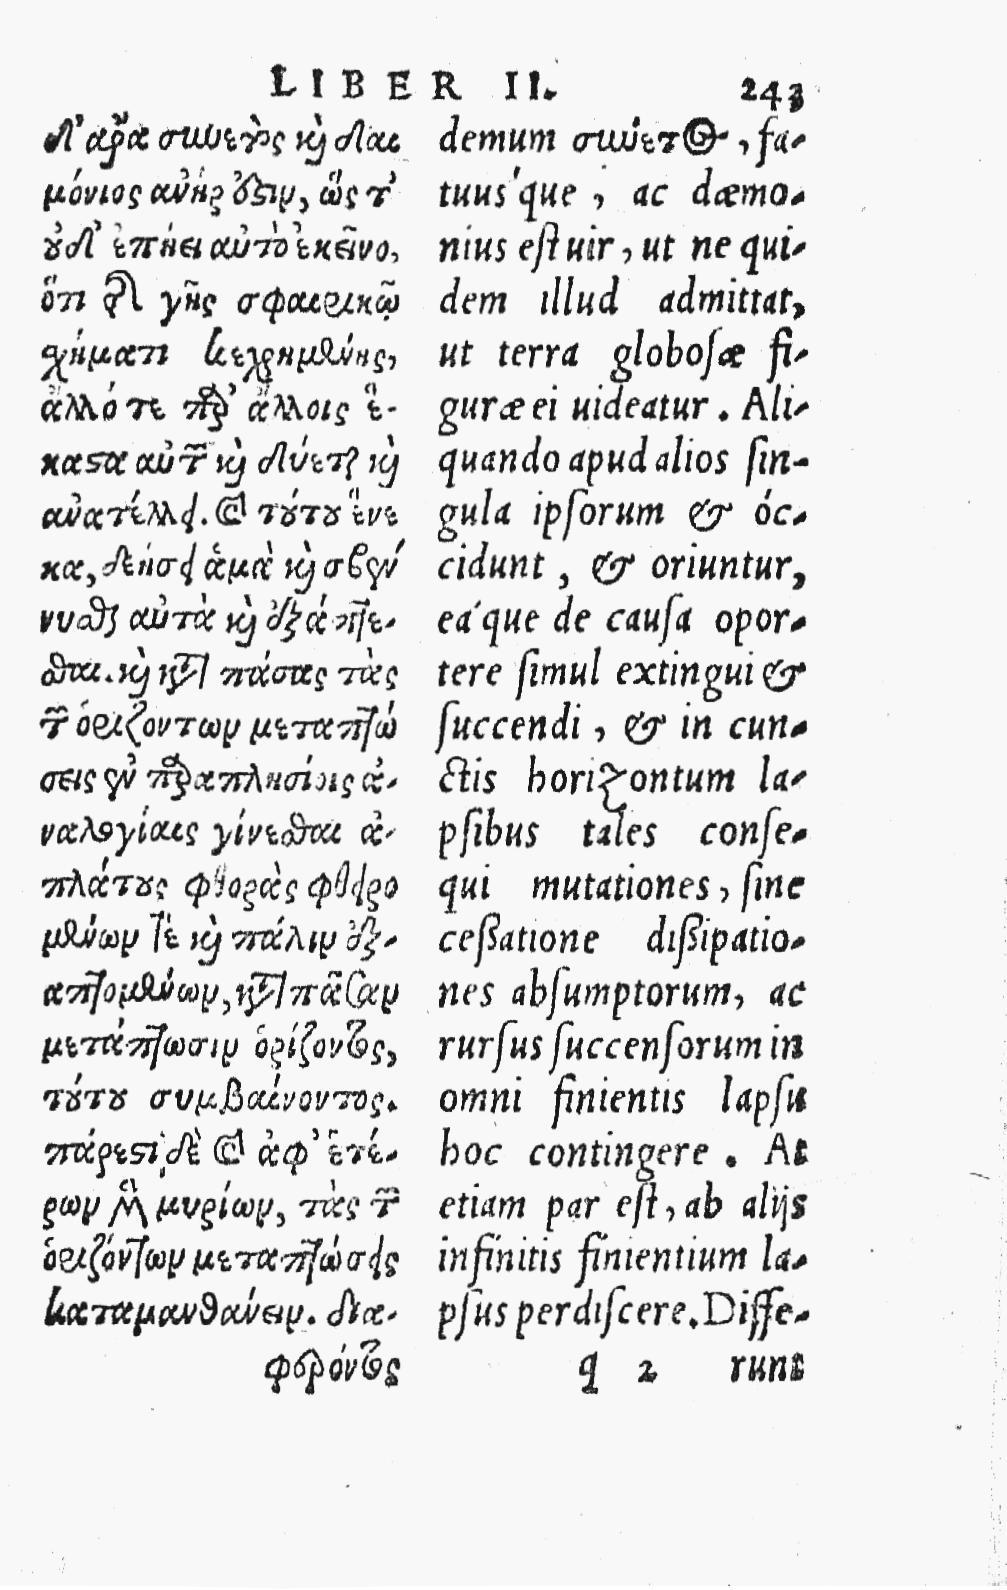 LIBER II. 243
δ' ἄρα συνετὸς καὶ δαι
μόνιος ἀνήρ ὅστιν, ὥς τ'
οὐδ' ἐπήει αὐτὸ ἐκεῖνο,
ὅτι τῆς γῆς σφαιρικῷ
σχήματι κεχρημένης,
ἄλλότε παρ' ἄλλοις ἕ-
καστα αὐτῶν καὶ δύεται καὶ
ἀνατέλλει. καὶ τούτου ἕνε
κα, δεήσει ἅμα καὶ σβεν
νυσθαι αὐτὰ καὶ ἐξάπτε-
σθαι. καὶ κατὰ πάσας τὰς
τῶν ὁριζόντων μεταπτώ
σεις ἐν παραπλησίοις ἀ-
ναλογίαις γίνεσθαι ἀ-
πλάτους φθορὰς φθειρο
μένων τε καὶ πάλιν ἐξ-
απτομένων, κατὰ πᾶσαν
μετάπτωσιν ὁρίζοντος,
τούτου συμβαίνοντος.
πάρεστι δὲ καὶ ἀφ' ἑτέ-
ρων μὴ μυρίων, τὰς τῶν
ὁριζόντων μεταπτώσεις
καταμανθάνειν. δια-
φορόντος
demum συνετος, fa-
tuus'que, ac dæmo-
nius est uir, ut ne qui-
dem illud admittat,
ut terra globosæ fi-
guræ ei uideatur. Ali-
quando apud alios sin-
gula ipsorum & óc-
cidunt, & oriuntur,
eá'que de causa opor-
tere simul extingui &
succendi, & in cun-
ctis horizontum la-
psibus tales conse-
qui mutationes, sine
cessatione dissipatio-
nes absumptorum, ac
rursus succensorum in
omni finientis lapsu
hoc contingere. At
etiam par est, ab alijs
infinitis finientium la-
psus perdiscere. Diffe-
q 2 runt